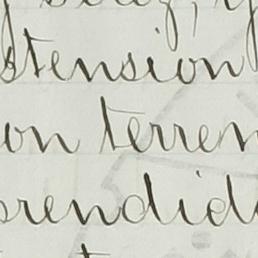 stension
on terren
prendid